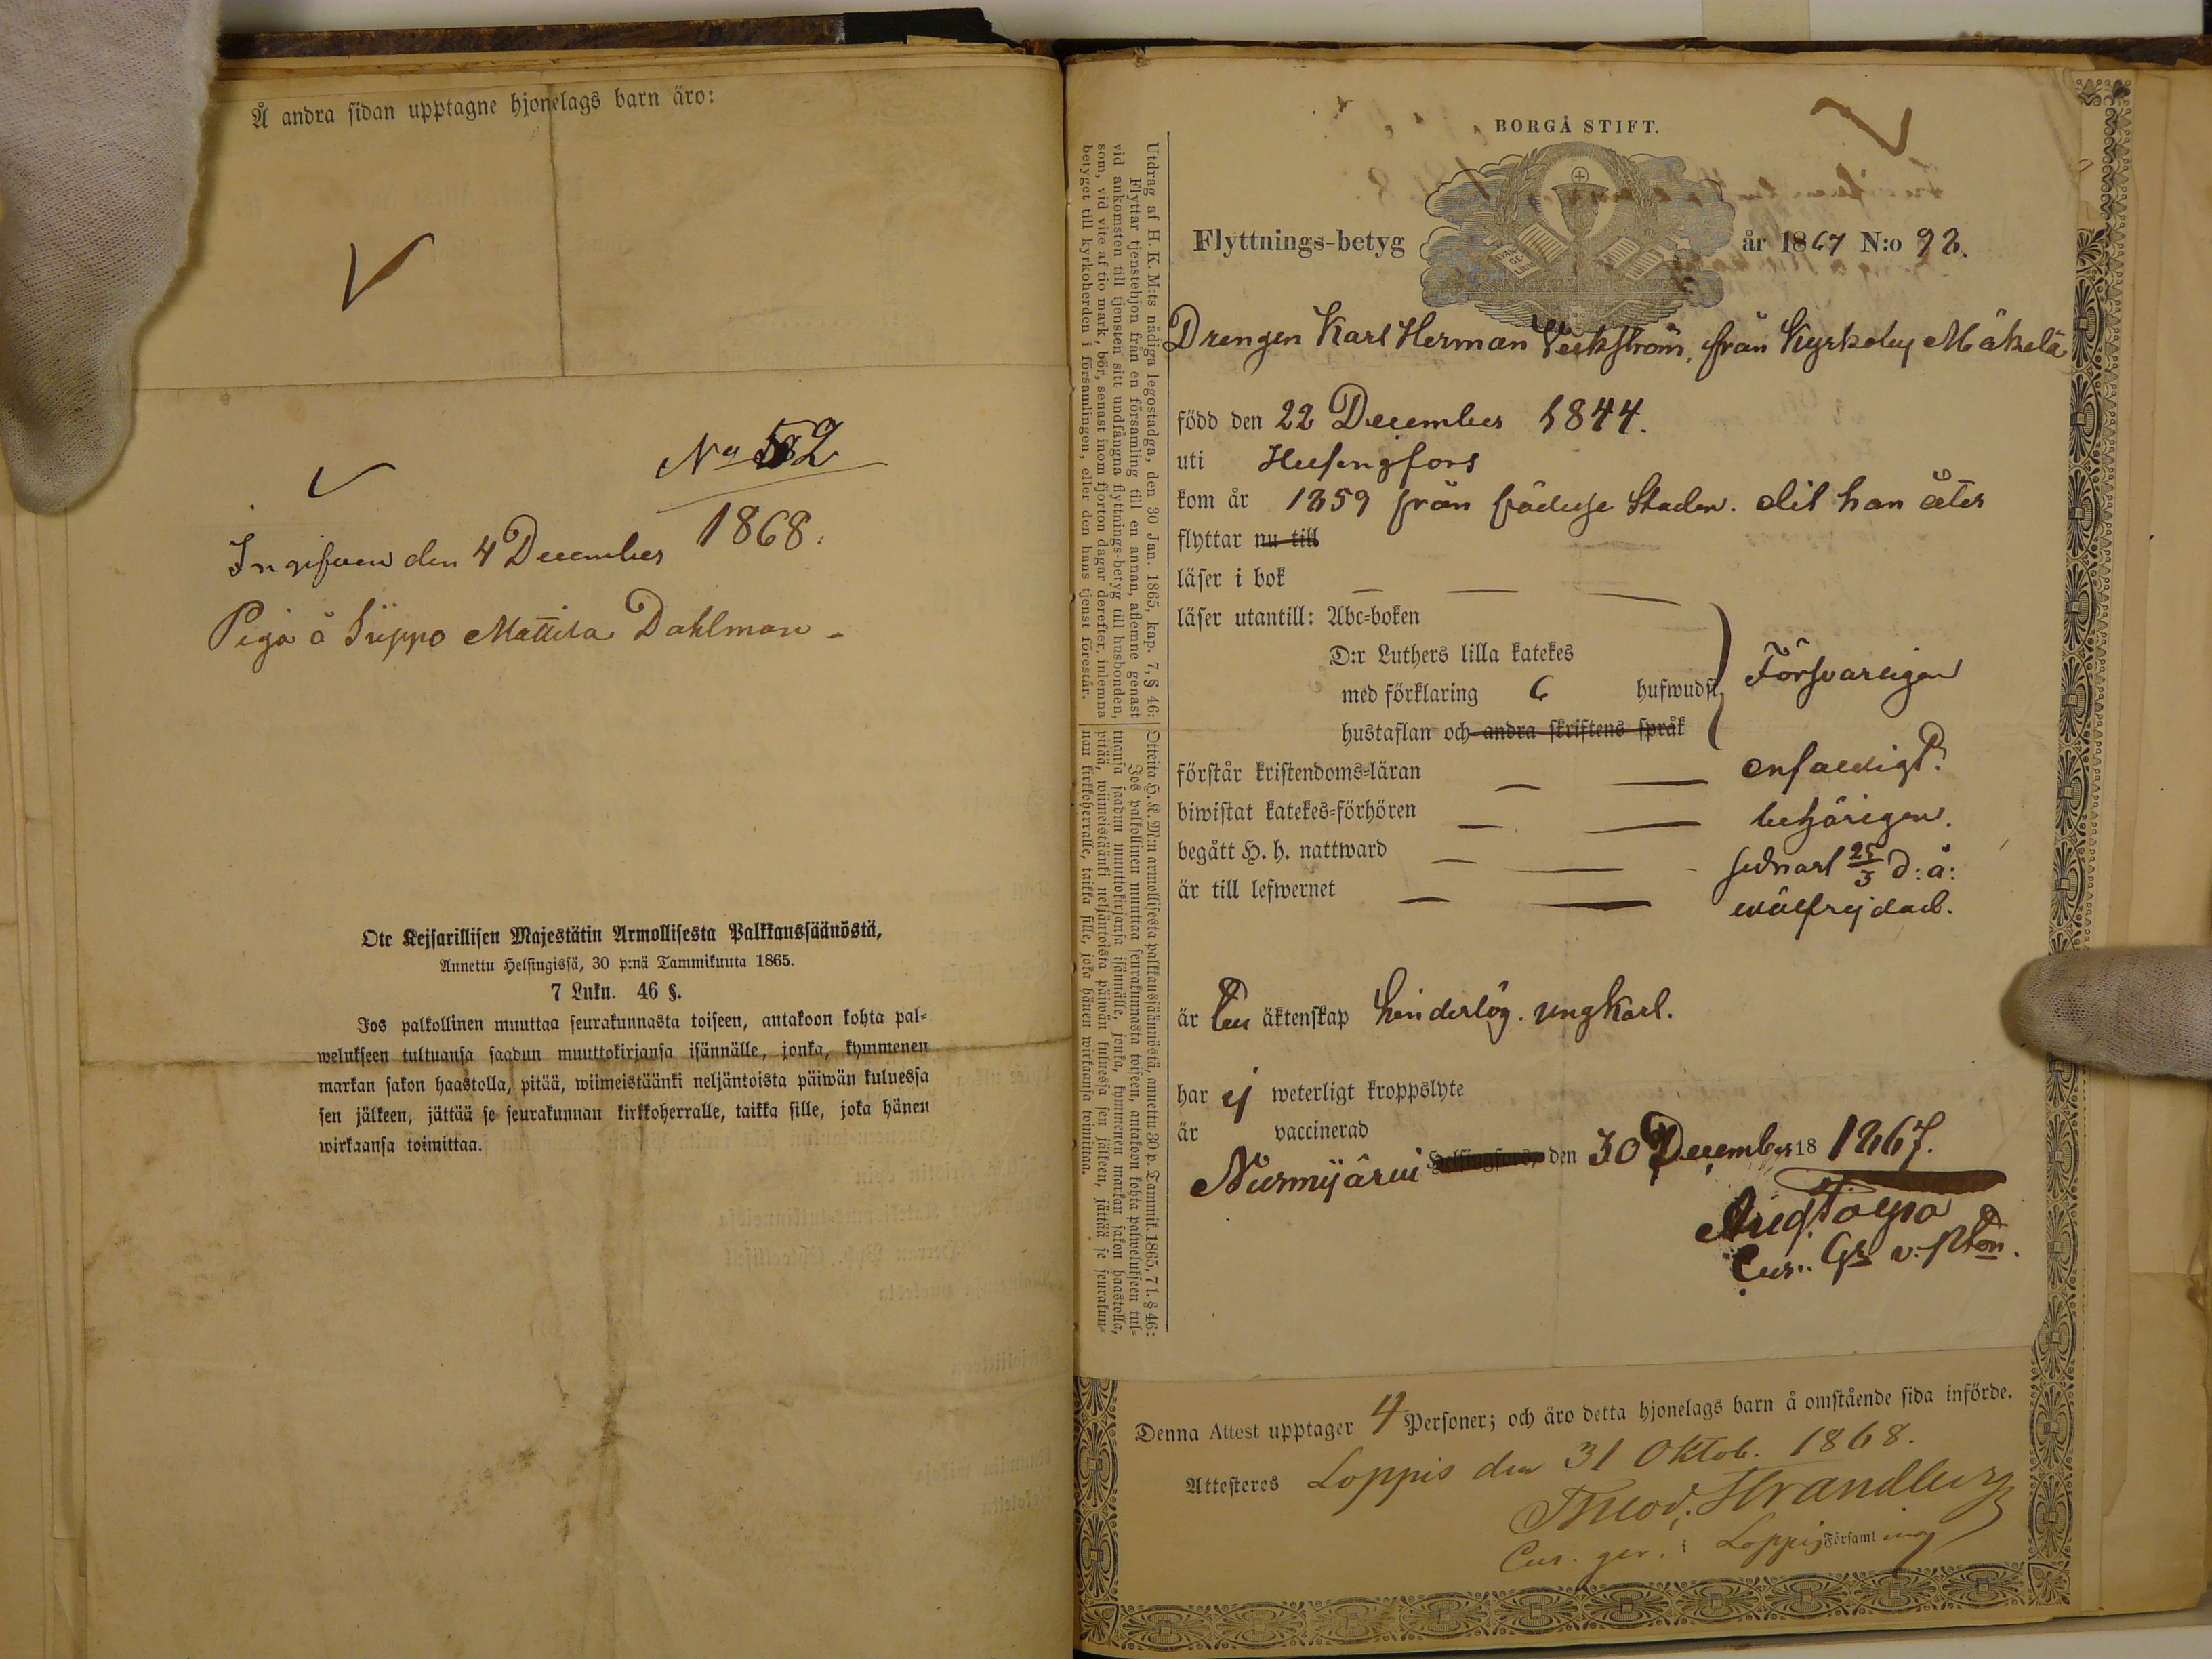 Å andra sidan upptagne hjonelags barn äro:
No 52
1868.
Ingifven den 4 December
Piga å Sippo Mattila Dahlman
Ote Kejsarillisen Majestätin Armollisesta Palkkaussäänöstä,
Annettu Helsingissä, 30 p:nä Tammikuuta 1865.
7 Luku. 46 §.
Jos palkollinen muuttaa seurakunnasta toiseen, antakoon kohta pal-
welukseen tultuansa saadun muuttokirjansa isännälle, jonka, kymmenen
markan sakon haastolla, pitää, wiimeistäänki neljäntoista päiwän kuluessa
sen jälkeen, jättää se seurakunnan kirkkoherralle, taikka sille, joka hänen
wirkaansa toimittaa.
Utdrag af H. K. M:ts nådiga legostadga, den 30 Jan. 1865, kap. 7, § 46:
Flyttar tjenstehjon från en församling till en annan, aflemne genast
vid ankomsten till tjensten sitt undfångna flyttnings-betyg till husbonden,
som, vid vite af tio mark, bör, senast inom fjorton dagar derefter, inlemna
betyget till kyrkoherden i församlingen, eller den hans tjenst förestår.
Otteita H. K. M:n armollisesta palkkaussäännöstä, annettu 30 p. Tammik. 1865, 7 l. § 46:
Jos palkollinen muuttaa seurakunnasta toiseen, antakoon kohta palwelukseen tul-
tuansa saadun muuttokirjansa isännälle, jonka, kymmenen markan sakon haastolla,
pitää, wiimeistäänki neljäntoista päiwän kuluessa sen jälkeen, jättää se seurakun-
nan kirkkoherralle, taikka sille, joka hänen wirkaansa toimittaa.
BORGÅ STIFT.
Flyttnings-betyg år 1867 N:o 92.
Drengen Karl Herman Verkström, från Kyrkoby Mäkelä
född den 22 December 1844.
uti Helsingfors
kom år 1859 från födelse Staden. dit han åter
flyttar nu till
läser i bok
läser utantill: Abc-boken
D:r Luthers lilla katekes
med förklaring 6 hufwudst. Försvarligen
hustaflan och andra skriftens språk
förstår kristendoms-läran enfaldigt.
biwistat katekes-förhören behörigen.
begått H. h. nattward sednast 25/3 d: å:
är till lefwernet wälfrejdad.
är till äktenskap hinderlös. ungkarl.
har ej weterligt kroppslyte
är vaccinerad
Nurmijärvi Helsingfors, den 30 December 18 1867.
Denna Attest upptager 4 Personer; och äro detta hjonelags barn å omstående sida införde.
Attesteres Loppis den 31 Oktob. 1868.
Theod. Strandberg
Cur. ger. i Loppis Församling